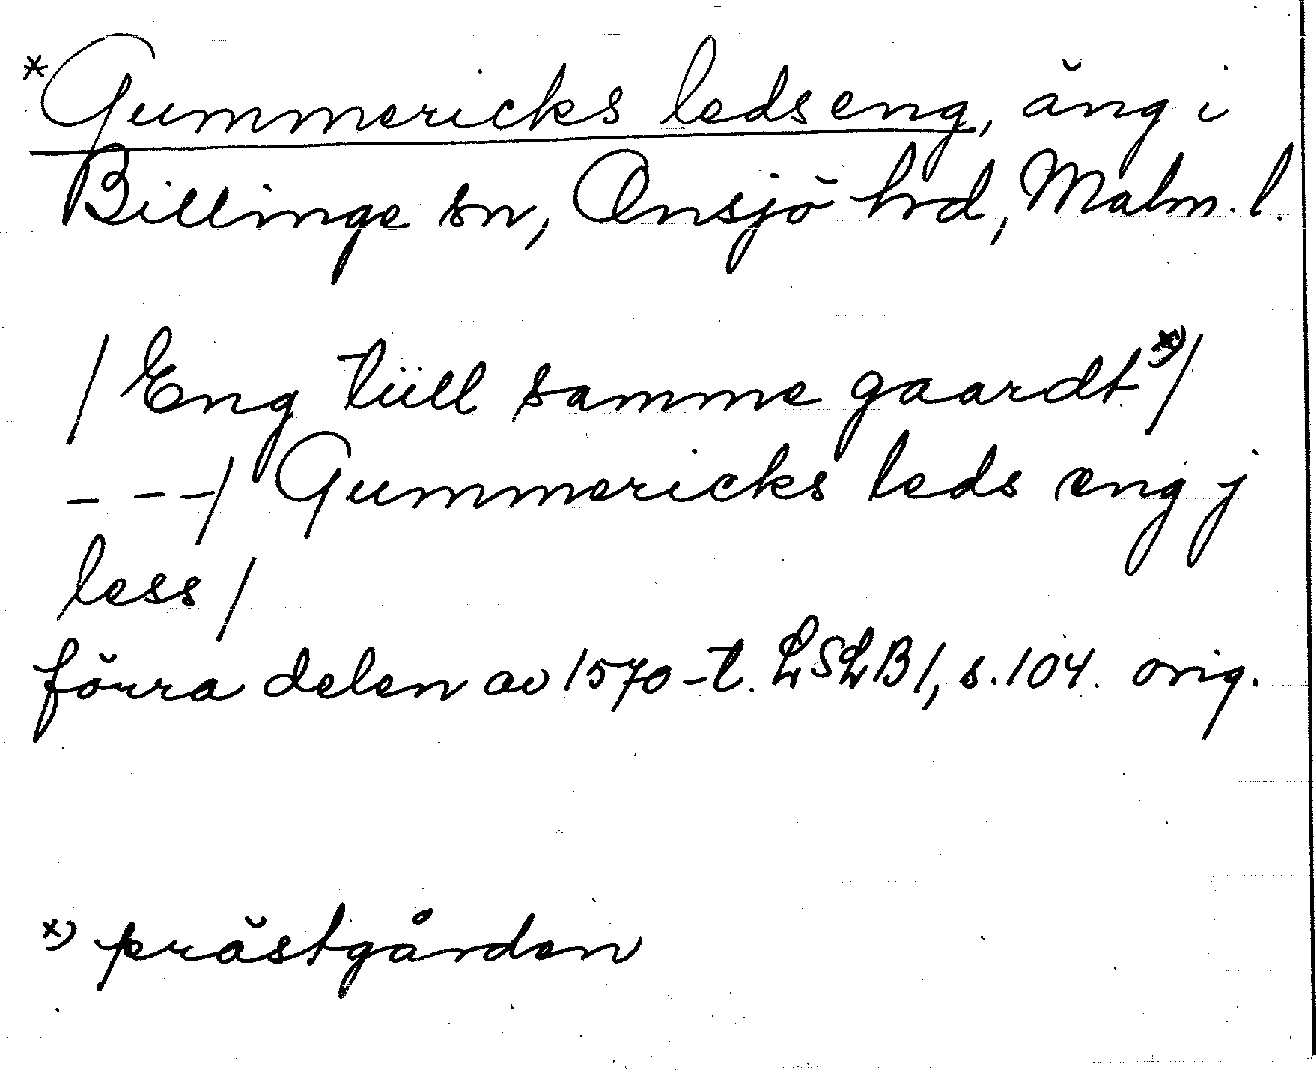 *Gummericks ledseng, äng i
Billinge sn, Onsjö hrd, Malm. l.
/ Eng tüll samme gaardt *) /
- - -/ Gummericks leds eng j
less /
förra delen av 1570-t. LSLB 1, s. 104. orig.
*) prästgården